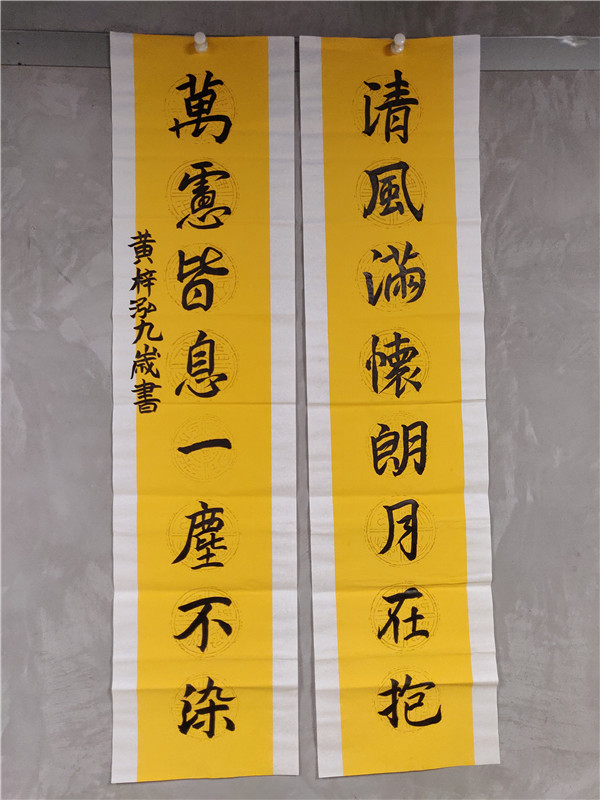 清風滿懷朗月在抱
萬慮皆息一塵不染
黄梓泓九歲書